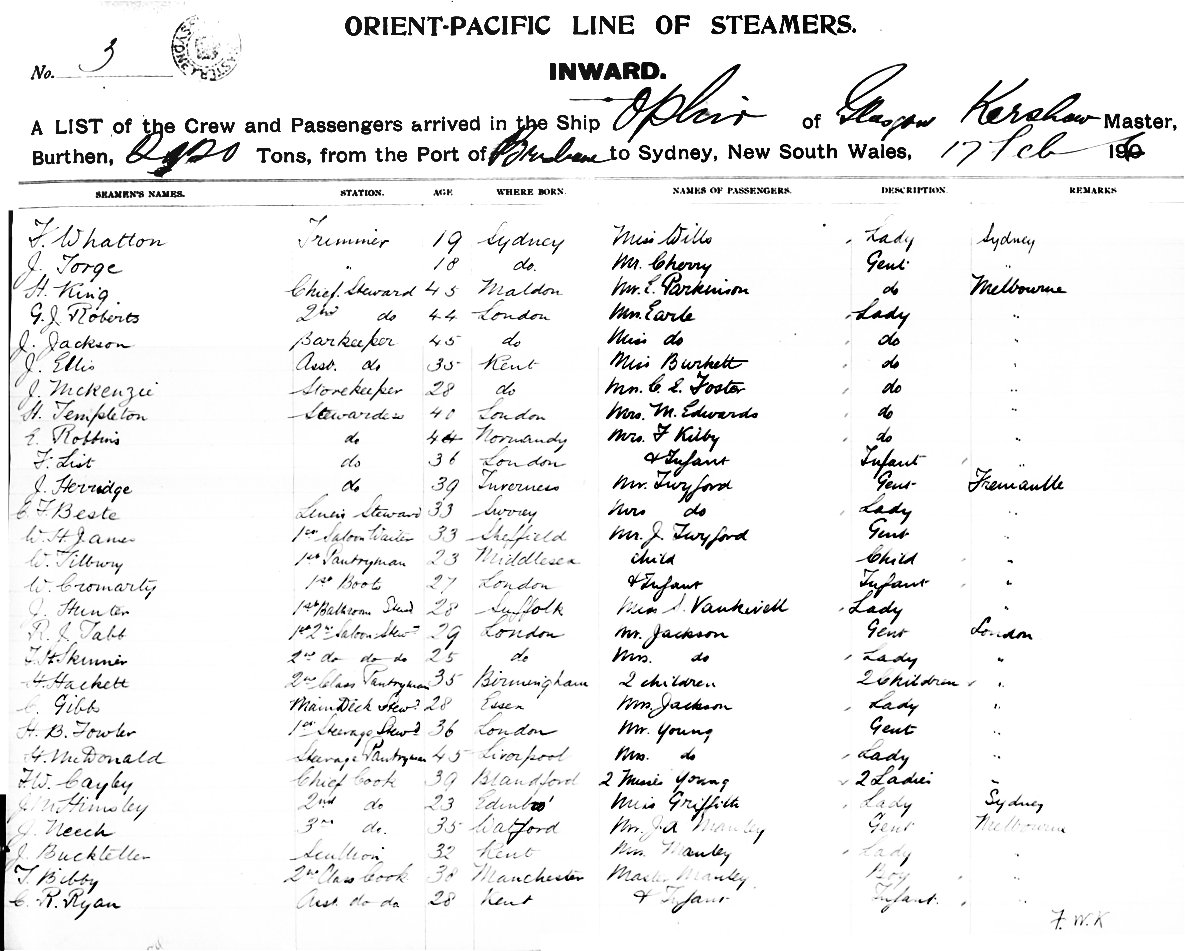 ORIENT-PACIFIC LINE OF STEAMERS.
No. 3
INWARD.
A LIST of the Crew and Passengers arrived in the Ship Ophir of Glasgow Kershaw Master,
Burthen, Tons, from the Port of Brisbane to Sydney, New South Wales, 17 Feb 1906
SEAMEN'S NAMES. STATION. AGE WHERE BORN. NAMES OF PASSENGERS. DESCRIPTION. REMARKS
F. Whatton Trimmer 19 Sydney Miss Wills Lady Sydney
J. Torge " 18 do. Mr. Cherry Gent "
H. King Chief Steward 45 Maldon Mr. E. Parkinson do Melbourne
G. J. Roberts 2nd do 44 London Mrs. Earle Lady "
J. Jackson Barkeeper 45 do Miss do do "
J. Ellis Asst. do 35 Kent Miss Burkett do "
J. McKenzie Storekeeper 28 do Mrs. C E. Foster do "
H. Templeton Stewardess 40 London Mrs. M. Edwards do "
E. Robbins do 44 Normandy Mrs. F Kilby do "
F. List do 36 London & Infant Infant "
J. Herridge do 39 Inverness Mr. Twyford Gent Fremantle
C F Beste Linen Steward 33 Mrs do Lady "
W. H. James 1st Saloon Waiter 33 Sheffield Mr. J. Twyford Gent "
W. Tilbury 1st Pantryman 23 Middlesex child Child "
W. Cromarty 1st Boots 27 London & Infant Infant "
J. Hunter 1st Bathroom Stwd 28 Suffolk Miss S. Lady "
R. J. Tabb 1st 2nd Saloon Stewd 29 London Mr. Jackson Gent London
F. H. Skinner 2nd do do do 25 do Mrs. do Lady "
H. Hackett 2nd Class Pantryman 35 Birmingham 2 children 2 Children "
C. Gibbs Main Deck Stewd 28 Essex Mrs. Jackson Lady "
H. B. Fowler 1st Steerage Stewd 36 London Mr. Young Gent "
H. McDonald Steerage Pantryman 45 Liverpool Mrs. do Lady "
F. W. Cayley Chief Cook 39 Blandford 2 Misses Young 2 Ladies "
J. 2nd do 23 Edinbro' Miss Griffith Lady Sydney
J. Neech 3rd do. 35 Mr. J. A Manley Gent Melbourne
J. Buckteller Scullion 32 Kent Mrs. Manley Lady "
T. Bibby 2nd Class Cook 38 Manchester Master Manley Boy "
C. R. Ryan Asst. do do 28 Kent & Infant Infant. "
F. W. K